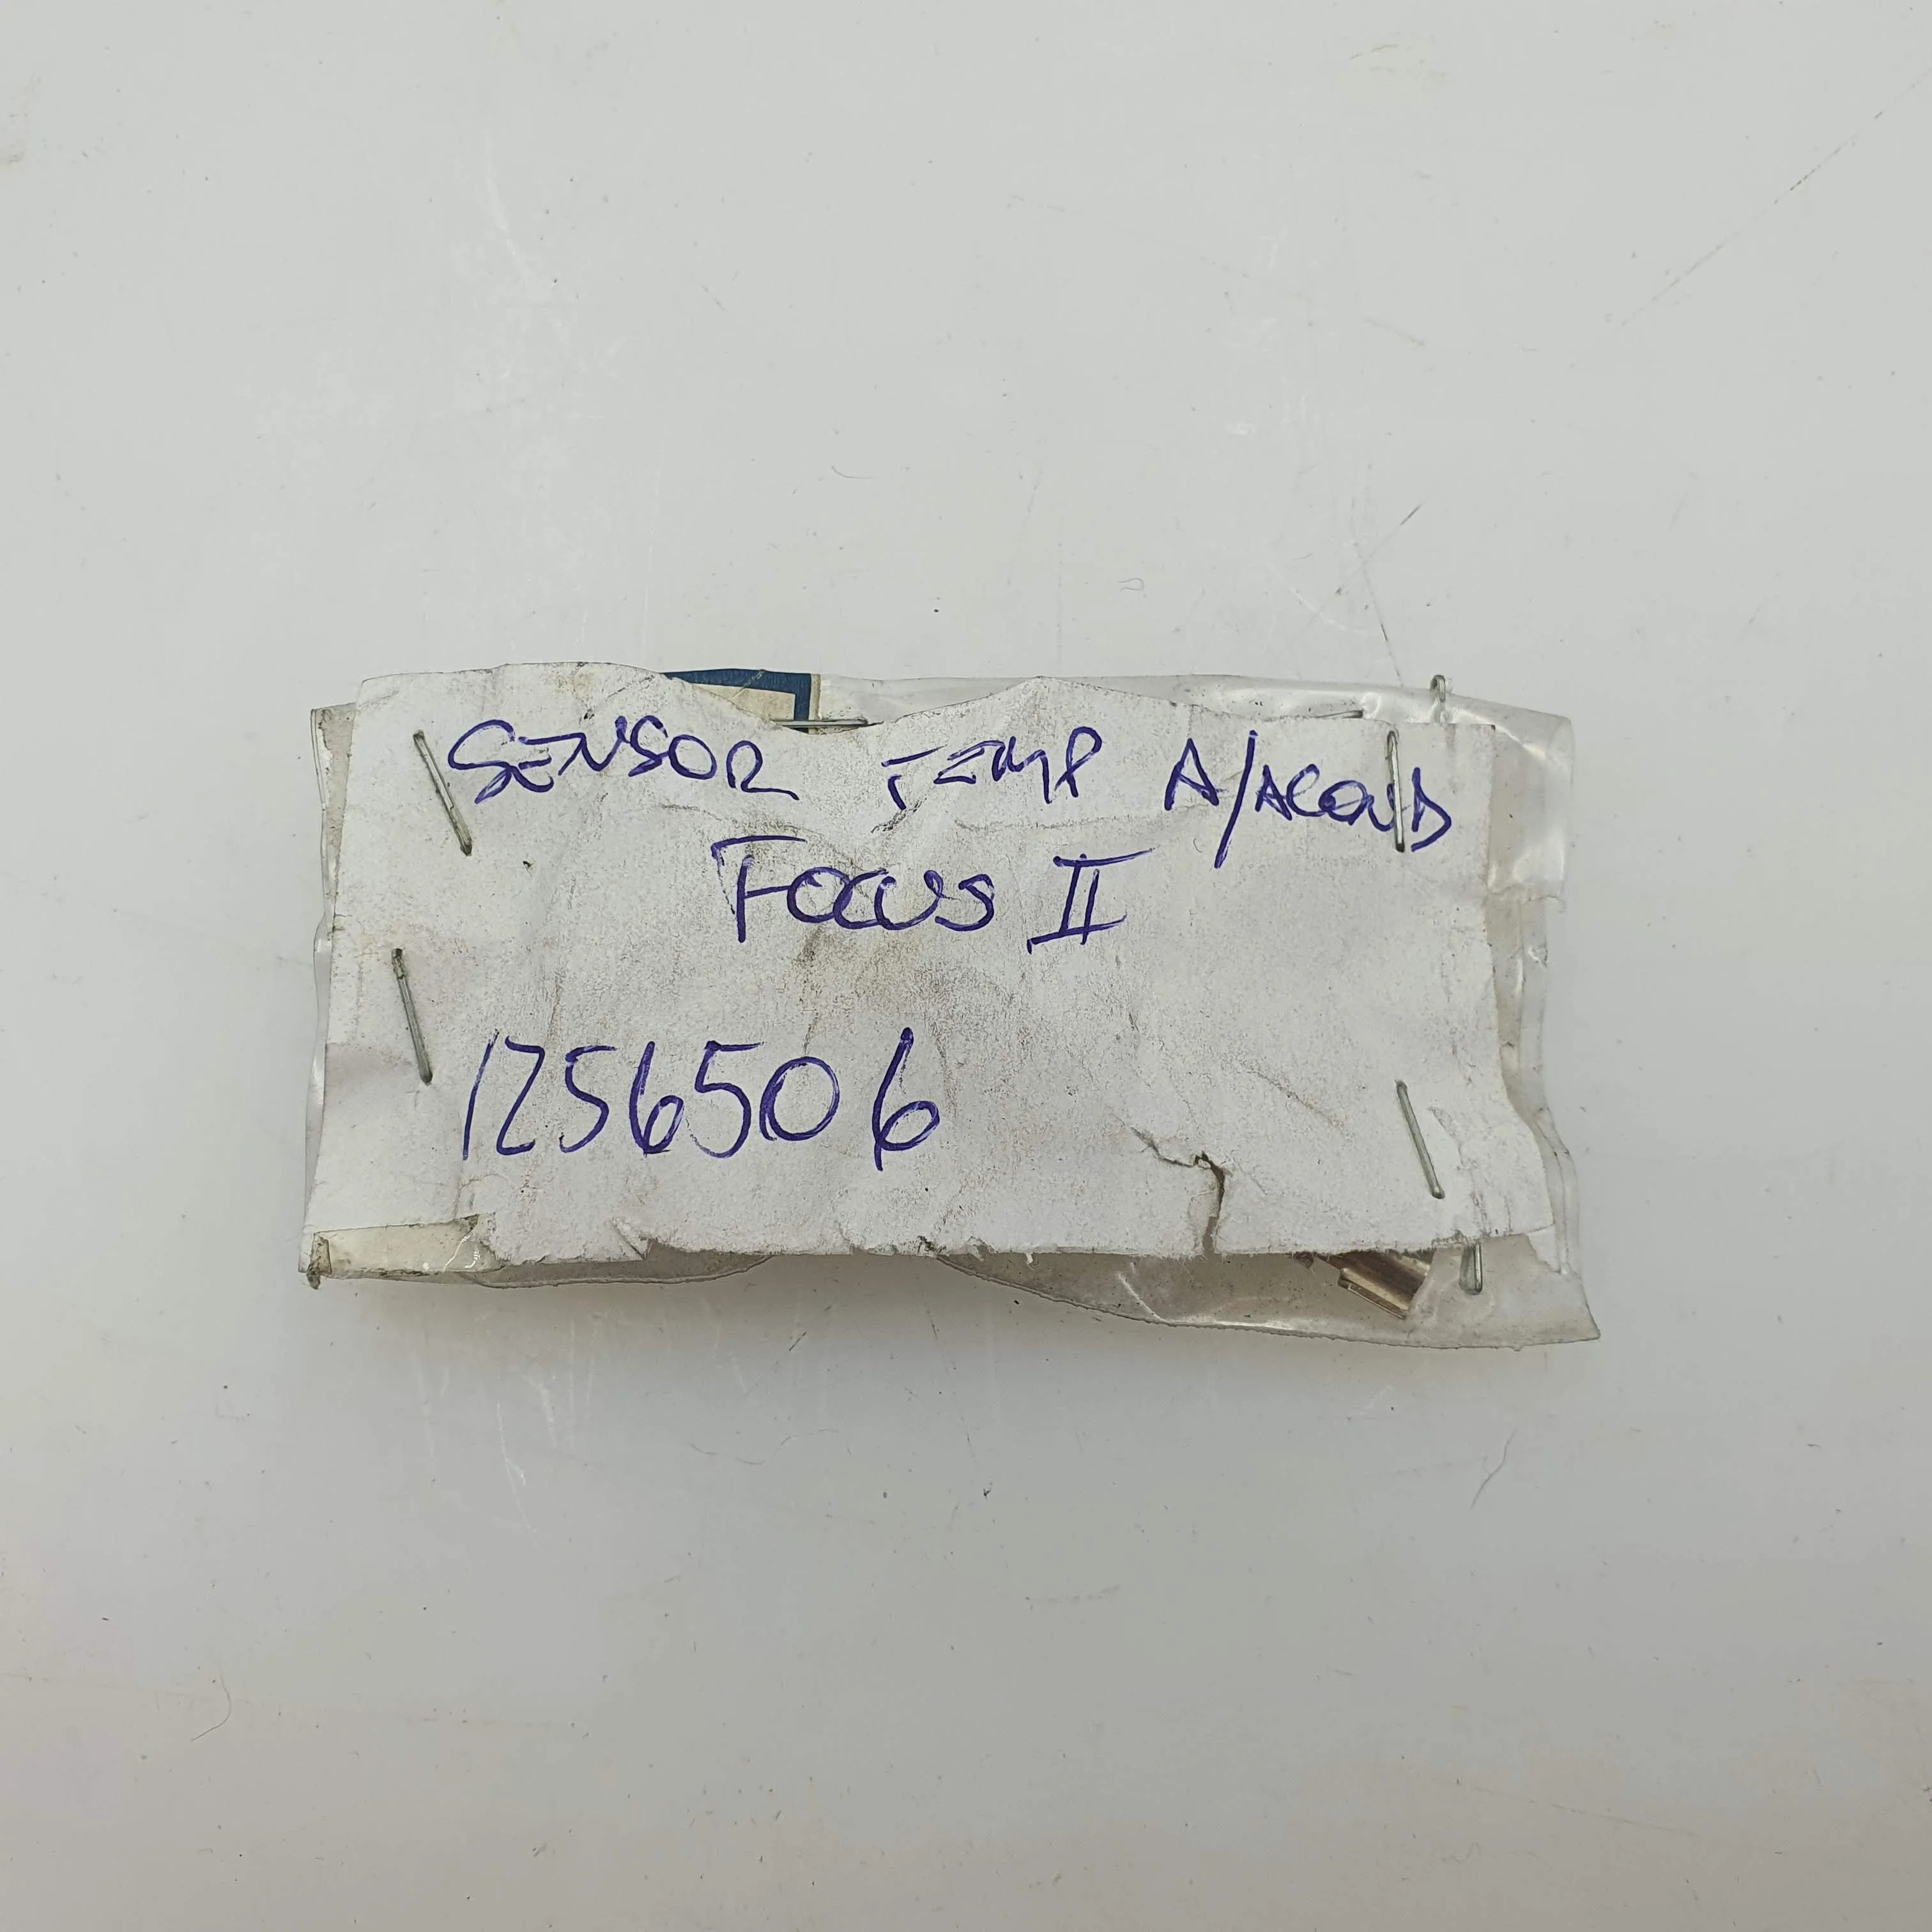 SENSOR TEMP A/ACOND
FOCUS II
1256506